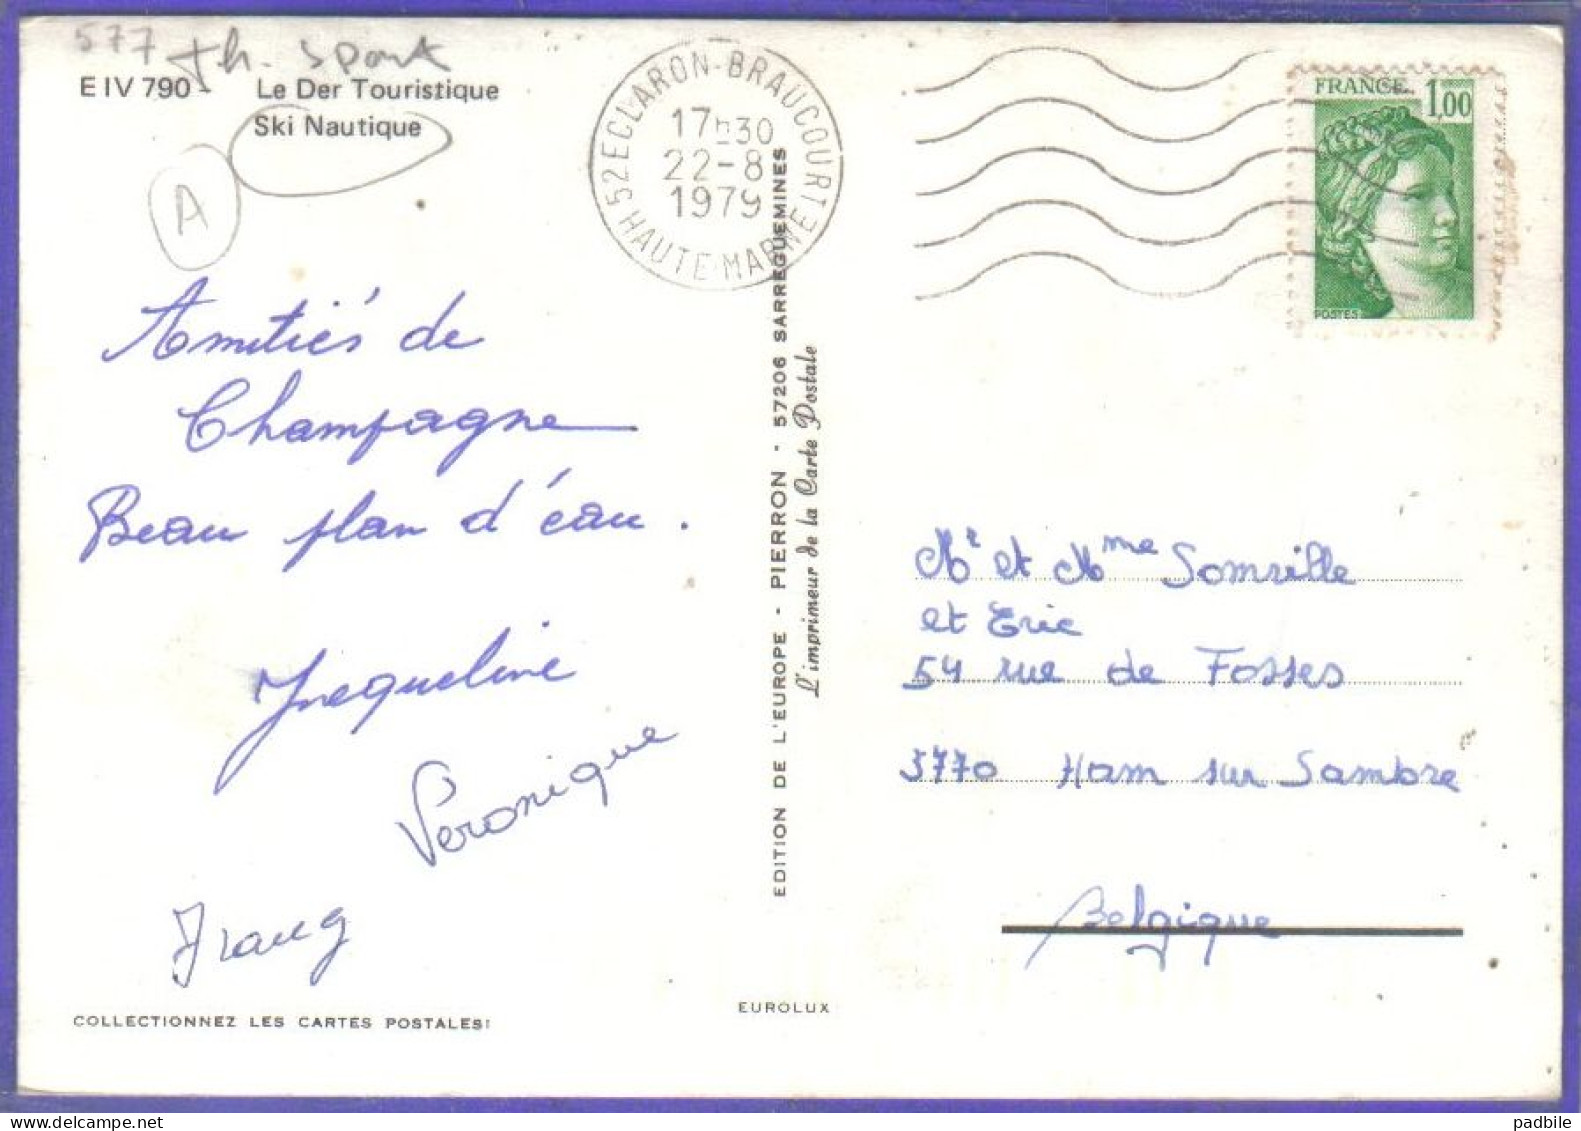 577 th. sport
E IV 790 - Le Der Touristique
Ski Nautique
A
52 ECLARON-BRAUCOURT
17h30
22-8
1979
HAUTE MARNE
FRANCE 1,00
POSTES
Amitiés de
Champagne
Beau plan d'eau.
Jacqueline
Véronique
COLLECTIONNEZ LES CARTES POSTALES!
EDITION DE L'EUROPE - PIERRON - 57206 SARREGUEMINES
L'imprimeur de la Carte Postale
EUROLUX
Mr et Mme Somville
et Eric
54 rue de Fosses
5770 Ham sur Sambre
Belgique
padbile